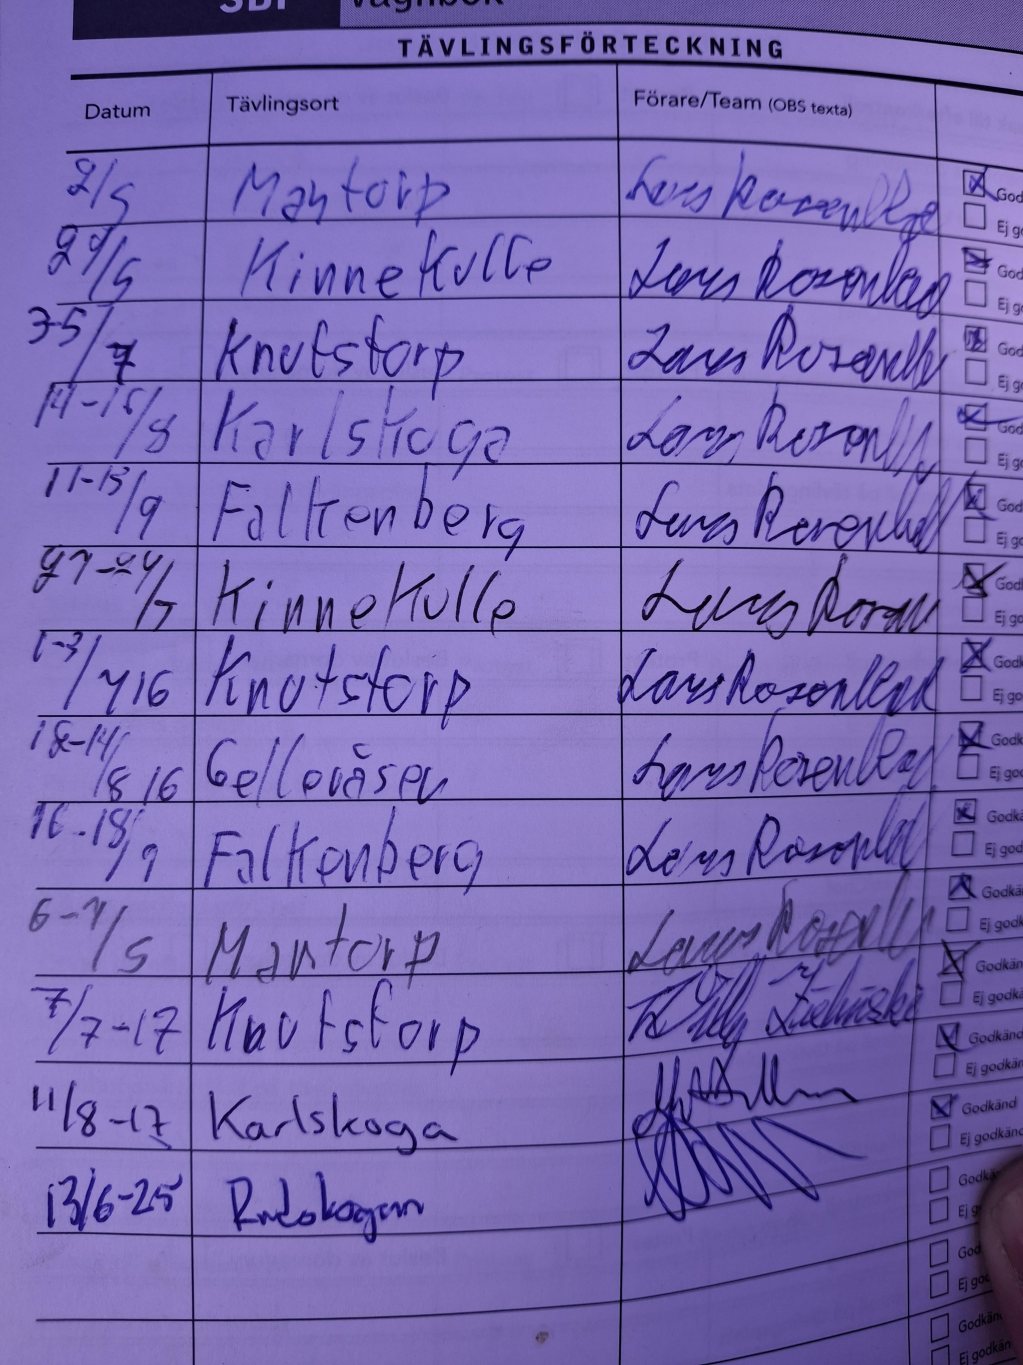 SBF Vagnbok
TÄVLINGSFÖRTECKNING
Datum Tävlingsort Förare/Team (OBS texta)
2/5 Mantorp Lars Rosenblad God
Ej go
29/5 Kinnekulle Lars Rosenblad God
Ej go
3-5/7 Knutstorp Lars Rosenbl God
Ej go
14-15/8 Karlskoga Lars Rosenbl God
Ej go
11-13/9 Falkenberg Lars Rosenblad God
Ej go
/5 Kinnekulle Lars Rosen God
Ej go
1-3/7 16 Knutstorp Lars Rosenblad Godk
Ej go
12-14/8 16 Gelleråsen Lars Rosenblad Godk
Ej god
16-18/9 Falkenberg Lars Rosenblad Godkä
Ej god
6-7/5 Mantorp Lars Rosenbl Godkä
Ej godk
7/7-17 Knutstorp Willy Zielinski Godkän
Ej godkä
11/8-17 Karlskoga Godkänd
Ej godkän
13/6-25 Rudskogen Godkänd
Ej godkänd
Godkä
Ej g
God
Ej god
Godkän
Ej godkän